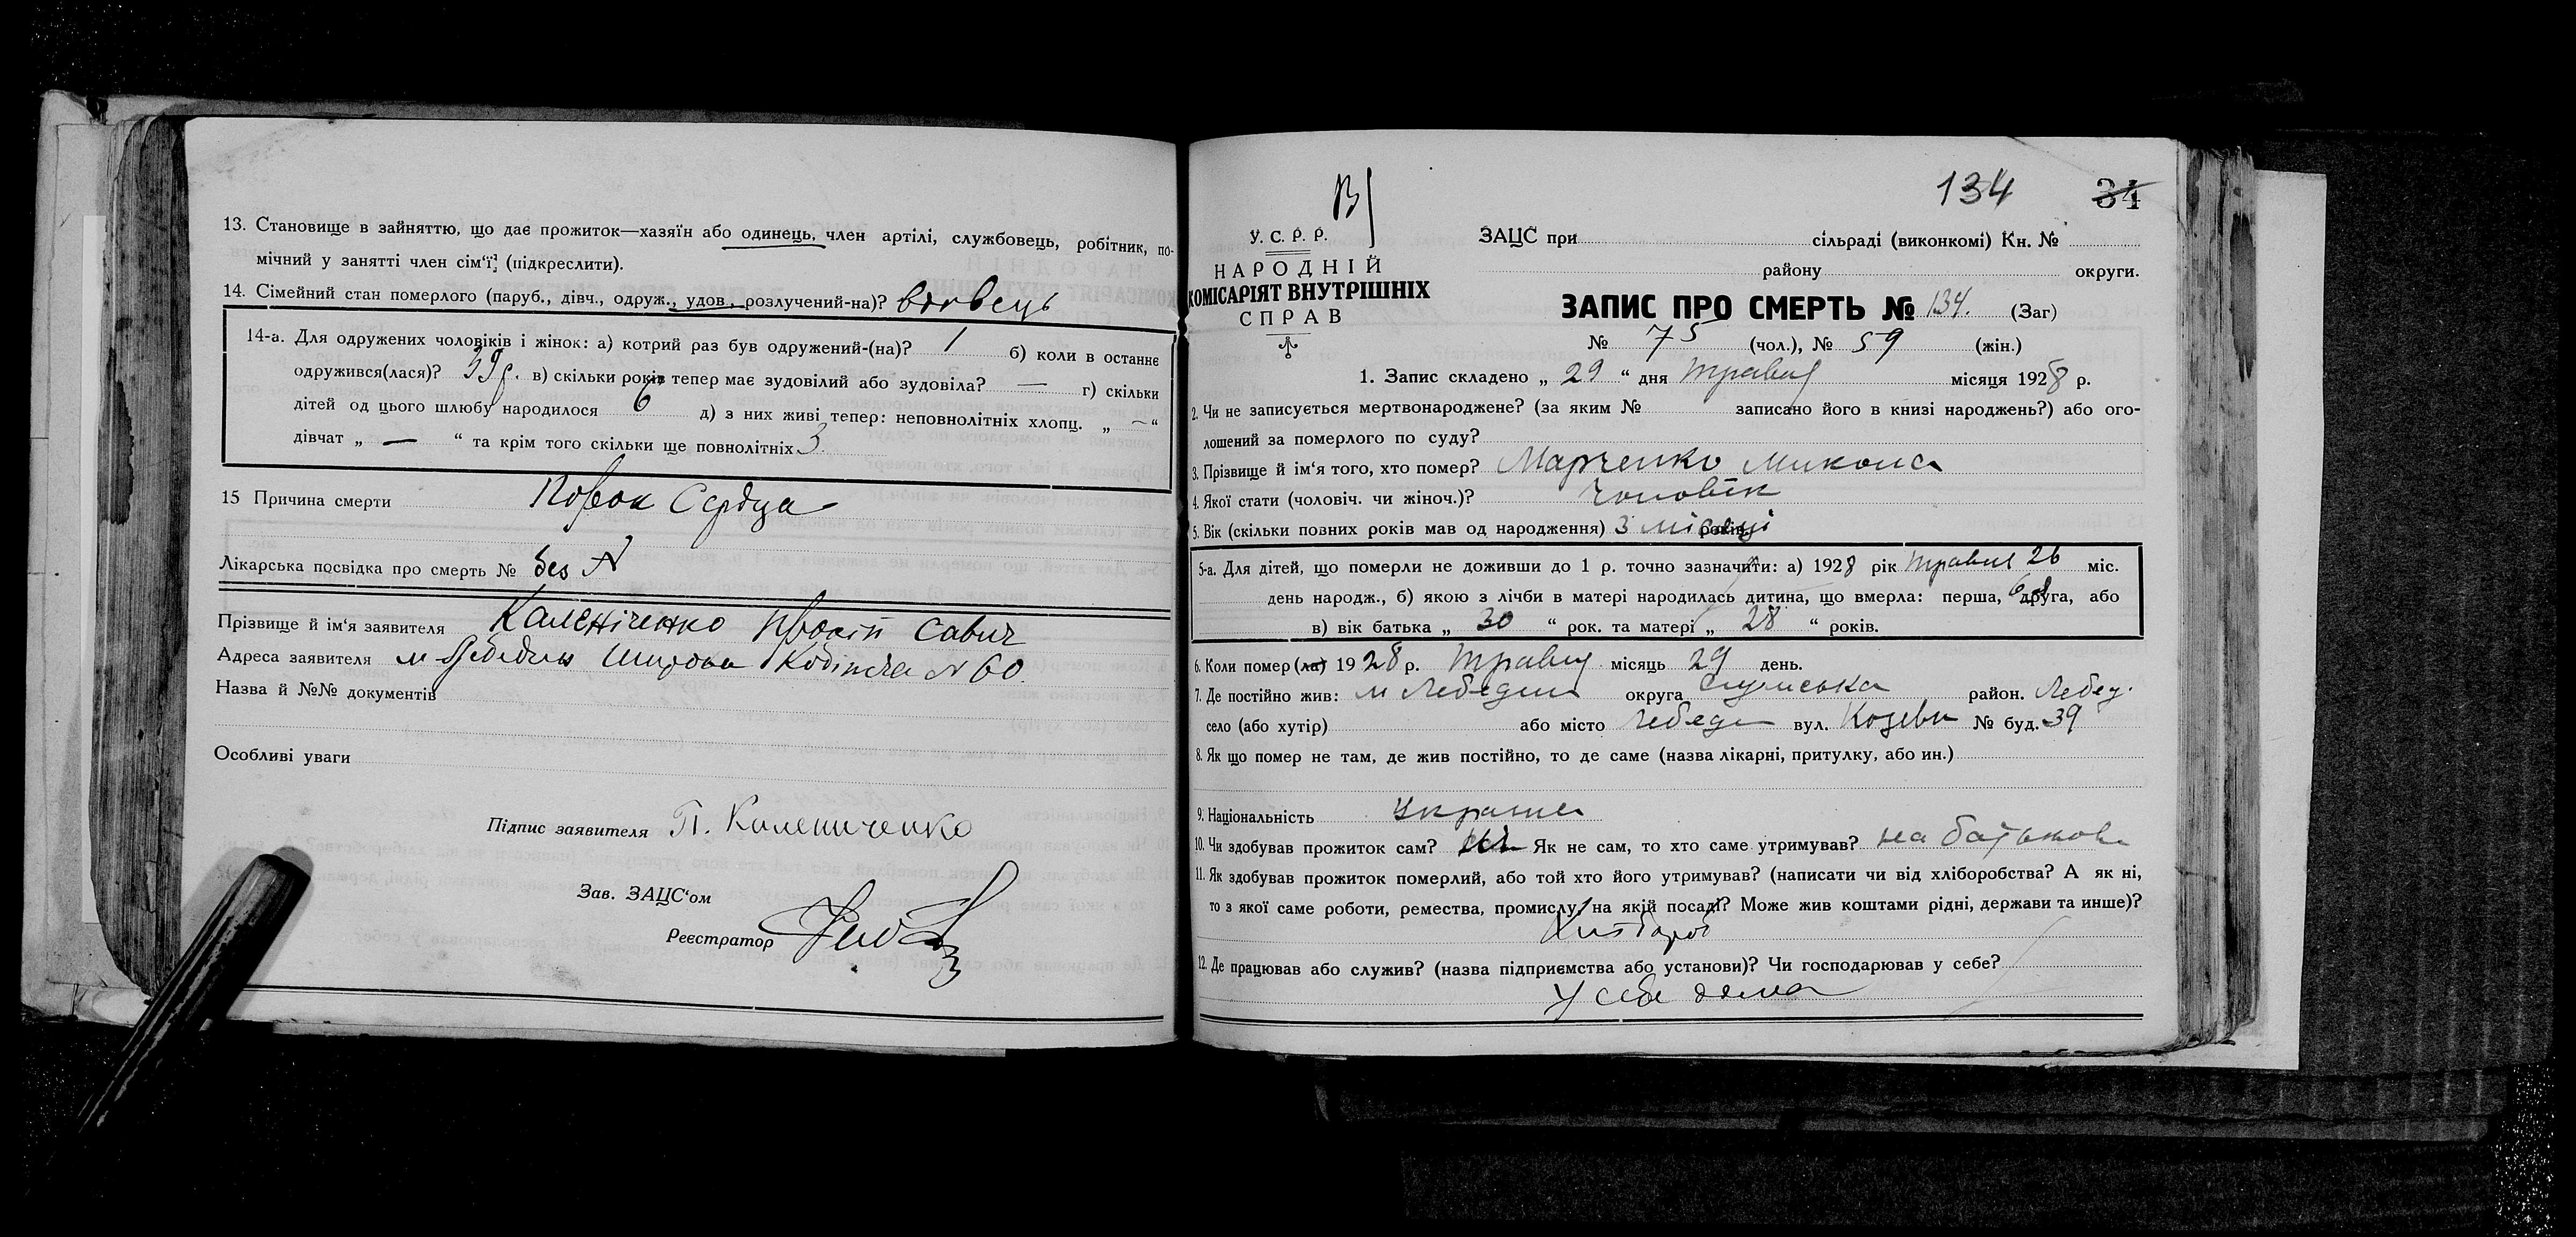 13. Становище в зайняттю, що дає прожиток—хазяїн або одинець, член артілі, службовець, робітник, по-
мічний у занятті член сім'ї; (підкреслити).
14. Сімейний стан померлого (паруб., дівч., одруж., удов., розлучений-на)? вдовець
14-а. Для одружених чоловіків і жінок: а) котрий раз був одружений-(на)? 1 б) коли в останнє
одружився(лася)? в) скільки років тепер має зудовілий або зудовіла? — г) скільки
дітей од цього шлюбу народилося 6 д) з них живі тепер: неповнолітніх хлопц. „ — “
дівчат „ — “ та крім того скільки ще повнолітніх 3.
15 Причина смерти Порок Сердца
Лікарська посвідка про смерть № без №
Прізвище й ім'я заявителя Каленіченко Савич
Адреса заявителя м Лебедин Широка Кобижча № 60.
Назва й №№ документів
Особливі уваги
Підпис заявителя П. Калениченко
Зав. ЗАЦС'ом
Реєстратор
134 34
У. С. Р. Р.
НАРОДНІЙ
КОМІСАРІЯТ ВНУТРІШНІХ
СПРАВ
ЗАЦС при сільраді (виконкомі) Кн. №
району округи.
ЗАПИС ПРО СМЕРТЬ № 134. (Заг)
№ 75 (чол.), № 59 (жін.)
1. Запис складено „ 29 “ дня Травня місяця 1928 р.
2. Чи не записується мертвонароджене? (за яким № записано його в книзі народжень?) або ого-
лошений за померлого по суду?
3. Прізвище й ім'я того, хто помер? Марченко Микола
4. Якої стати (чоловіч. чи жіноч.)? Чоловік
5. Вік (скільки повних років мав од народження) 3 місяці років
5-а. Для дітей, що померли не доживши до 1 р. точно зазначити: а) 1928 рік Травня 26 міс.
день народж., б) якою з лічби в матері народилась дитина, що вмерла: перша, друга, або
в) вік батька „ 30 “ рок. та матері „ 28 “ років.
6. Коли помер (ла) 1928 р. Травня місяць 29 день.
7. Де постійно жив: м Лебедин округа Сумська район. Лебед.
село (або хутір) або місто Лебедин вул. № буд. 39
8. Як що помер не там, де жив постійно, то де саме (назва лікарні, притулку, або ин.)
9. Національність Украінец
10. Чи здобував прожиток сам? Як не сам, то хто саме утримував? на батьков
11. Як здобував прожиток померлий, або той хто його утримував? (написати чи від хліборобства? А як ні,
то з якої саме роботи, ремества, промислу, на якій посаді? Може жив коштами рідні, держави та инше)?
Хлібороб
12. Де працював або служив? (назва підприємства або установи)? Чи господарював у себе?
У себе дома